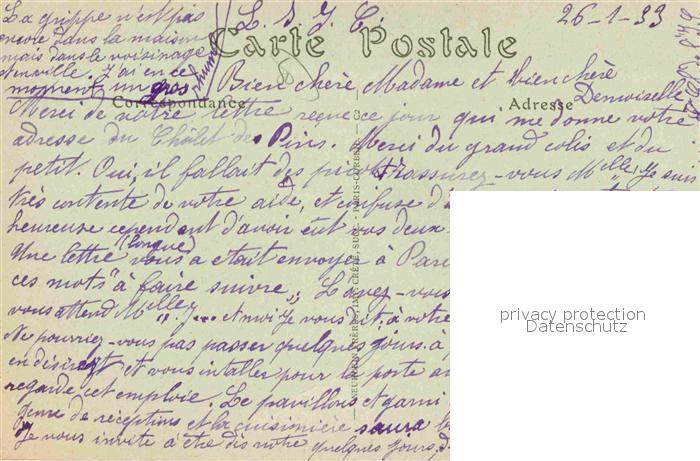 La grippe n'est pas
encore dans la maison
mais dans le voisinage
et en ville. J'ai en ce
moment un gros
rhume
L. S. J. C.
26-1-33
Carte Postale
Bien chère Madame et bien chère
Demoiselle
Correspondance
Adresse
Merci de votre lettre reçue ce jour qui me donne votre
adresse du Châlet des Pins. Merci du grand colis et du
petit. Oui, il fallait des Rassurez-vous Melle, Je suis
très contente de votre aide, et confuse
heureuse cependant d'avoir eut vos deux
Une lettre (longue) vous a etait envoyer à
ces mots "à faire suivre"
vous attend Melle et moi Je vous dit. à votre
Ne pourriez-vous pas passer quelques jours. a
en désirent et vous intaller pour la porte
regarde cet emploie. Le pavillon et garni
genre de réceptions et la cuisinière saura
Je vous invite à être dis notre quelques jours.
NEURDEIN FRÈRES, IMP. CRÉTÉ, SUCC. - PARIS-CORBEIL
privacy protection
Datenschutz